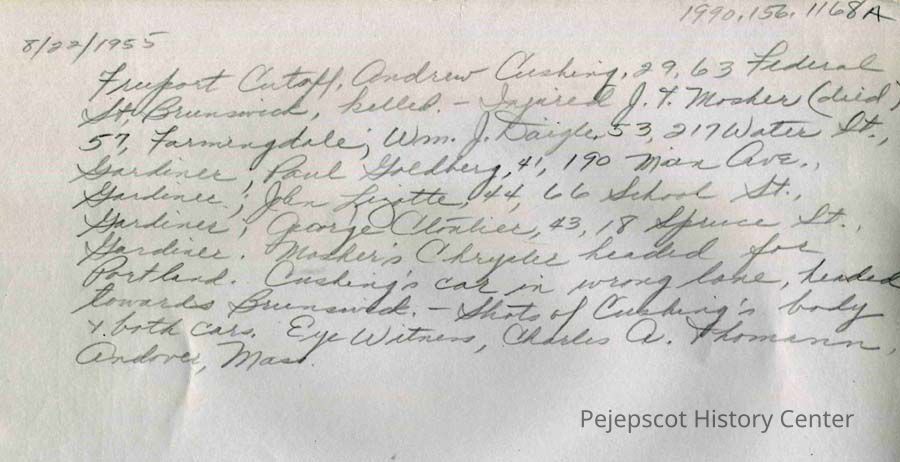 1990.156.1168A
8/22/1955
Freeport Cutoff, Andrew Cushing, 29, 63 Federal
St. Brunswick, killed. - Injured J. F. Mosher (died)
57, Farmingdale; Wm. J. Daigle, 53, 217 Water St.,
Gardiner; Paul Goldberg, 41, 190 Main Ave.,
Gardiner; John Lizotte, 44, 66 School St.,
Gardiner; George Cloutier, 43, 18 Spruce St.,
Gardiner. Mosher's Chrysler headed for
Portland. Cushing's car in wrong lane, headed
towards Brunswick. - Shots of Cushing's body
& both cars. Eye Witness, Charles A. Thomann,
Andover, Mass.
Pejepscot History Center